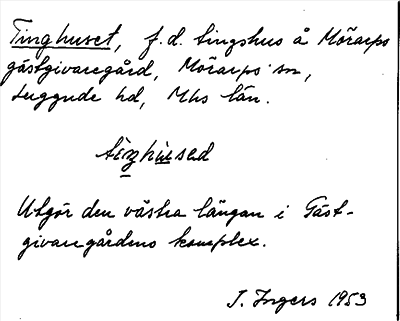 Tinghuset, f.d. tingshus å Mörarps
gästgivaregård, Mörarps sn,
Luggude hd, Mhs län.
tiŋhused
Utgör den västra längan i Gäst-
givaregårdens komplex.
J. Ingers 1953